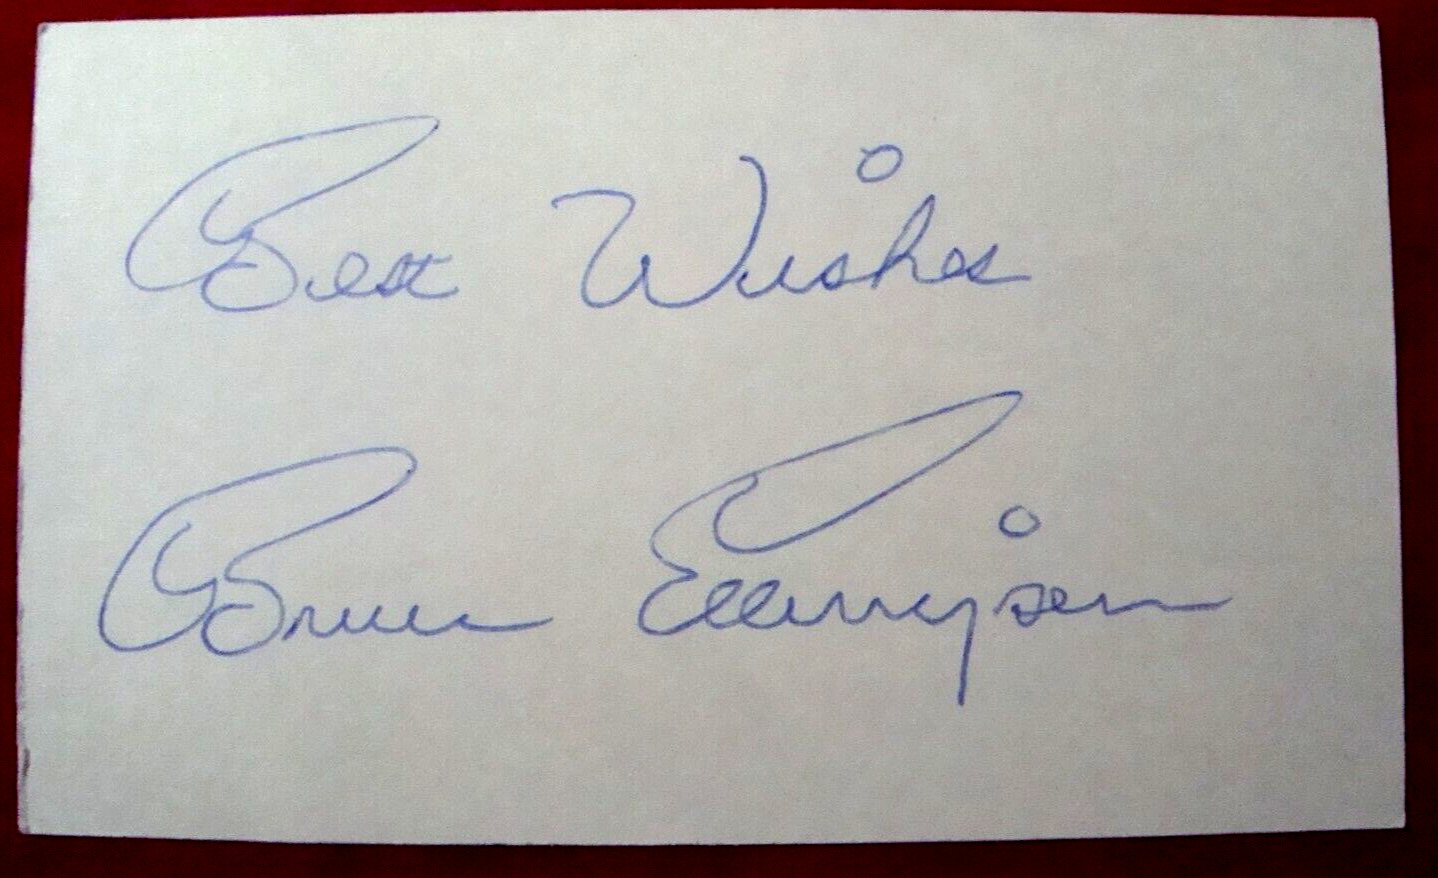 Best Wishes
Bruce Ellingsen